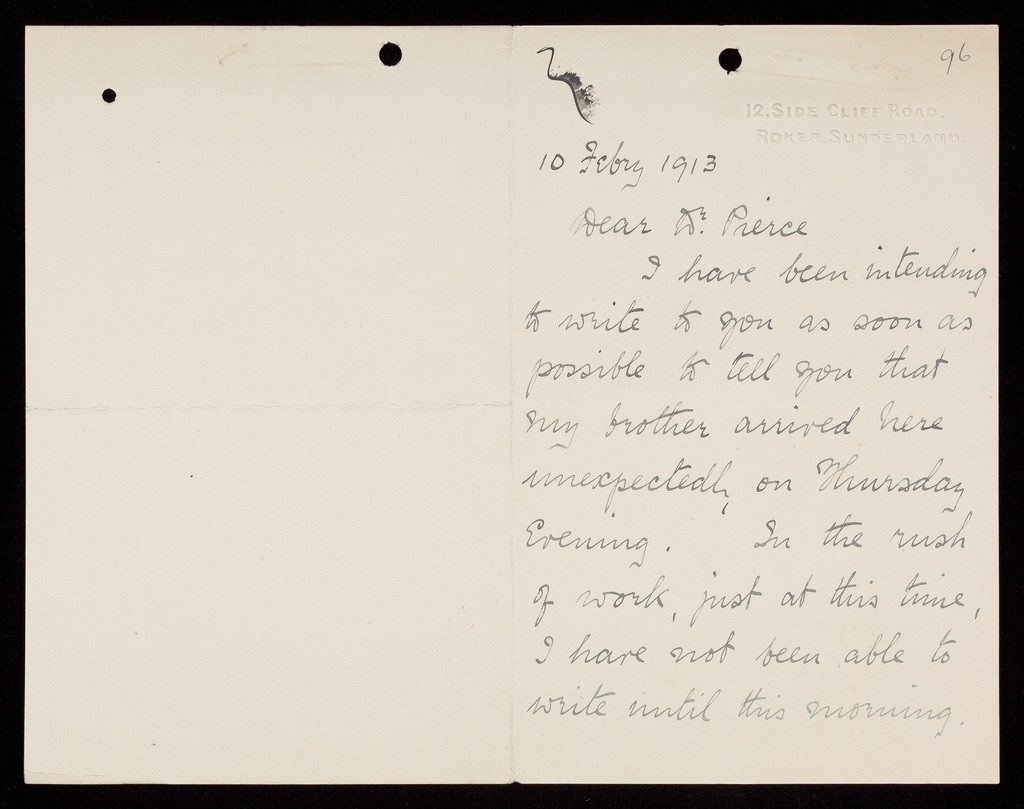 96
12, SIDE CLIFF ROAD.
ROKER. SUNDERLAND.
10 Febry 1913
Dear Dr. Pierce
I have been intending
to write to you as soon as
possible to tell you that
my brother arrived here
unexpectedly, on Thursday
Evening. In the rush
of work, just at this time,
I have not been able to
write until this morning.